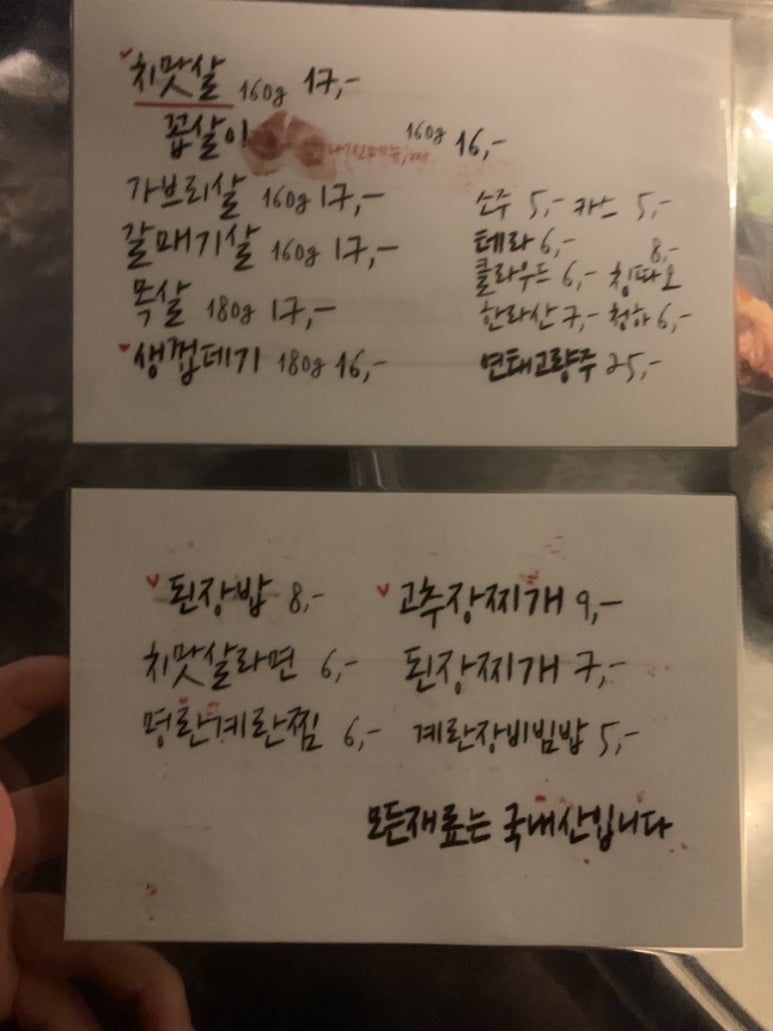 치맛살 160g 17,-
꼽살이 160g 16,-
가브리살 160g 17,-
갈매기살 160g 17,-
목살 180g 17,-
생껍데기 180g 16,-
소주 5,- 카스 5,-
테라 6,-
클라우드 6,- 칭따오 8,-
한라산 7,- 청하 6,-
연태고량주 25,-
된장밥 8,- 고추장찌개 9,-
치맛살라면 6,- 된장찌개 7,-
명란계란찜 6,- 계란장비빔밥 5,-
모든재료는 국내산입니다